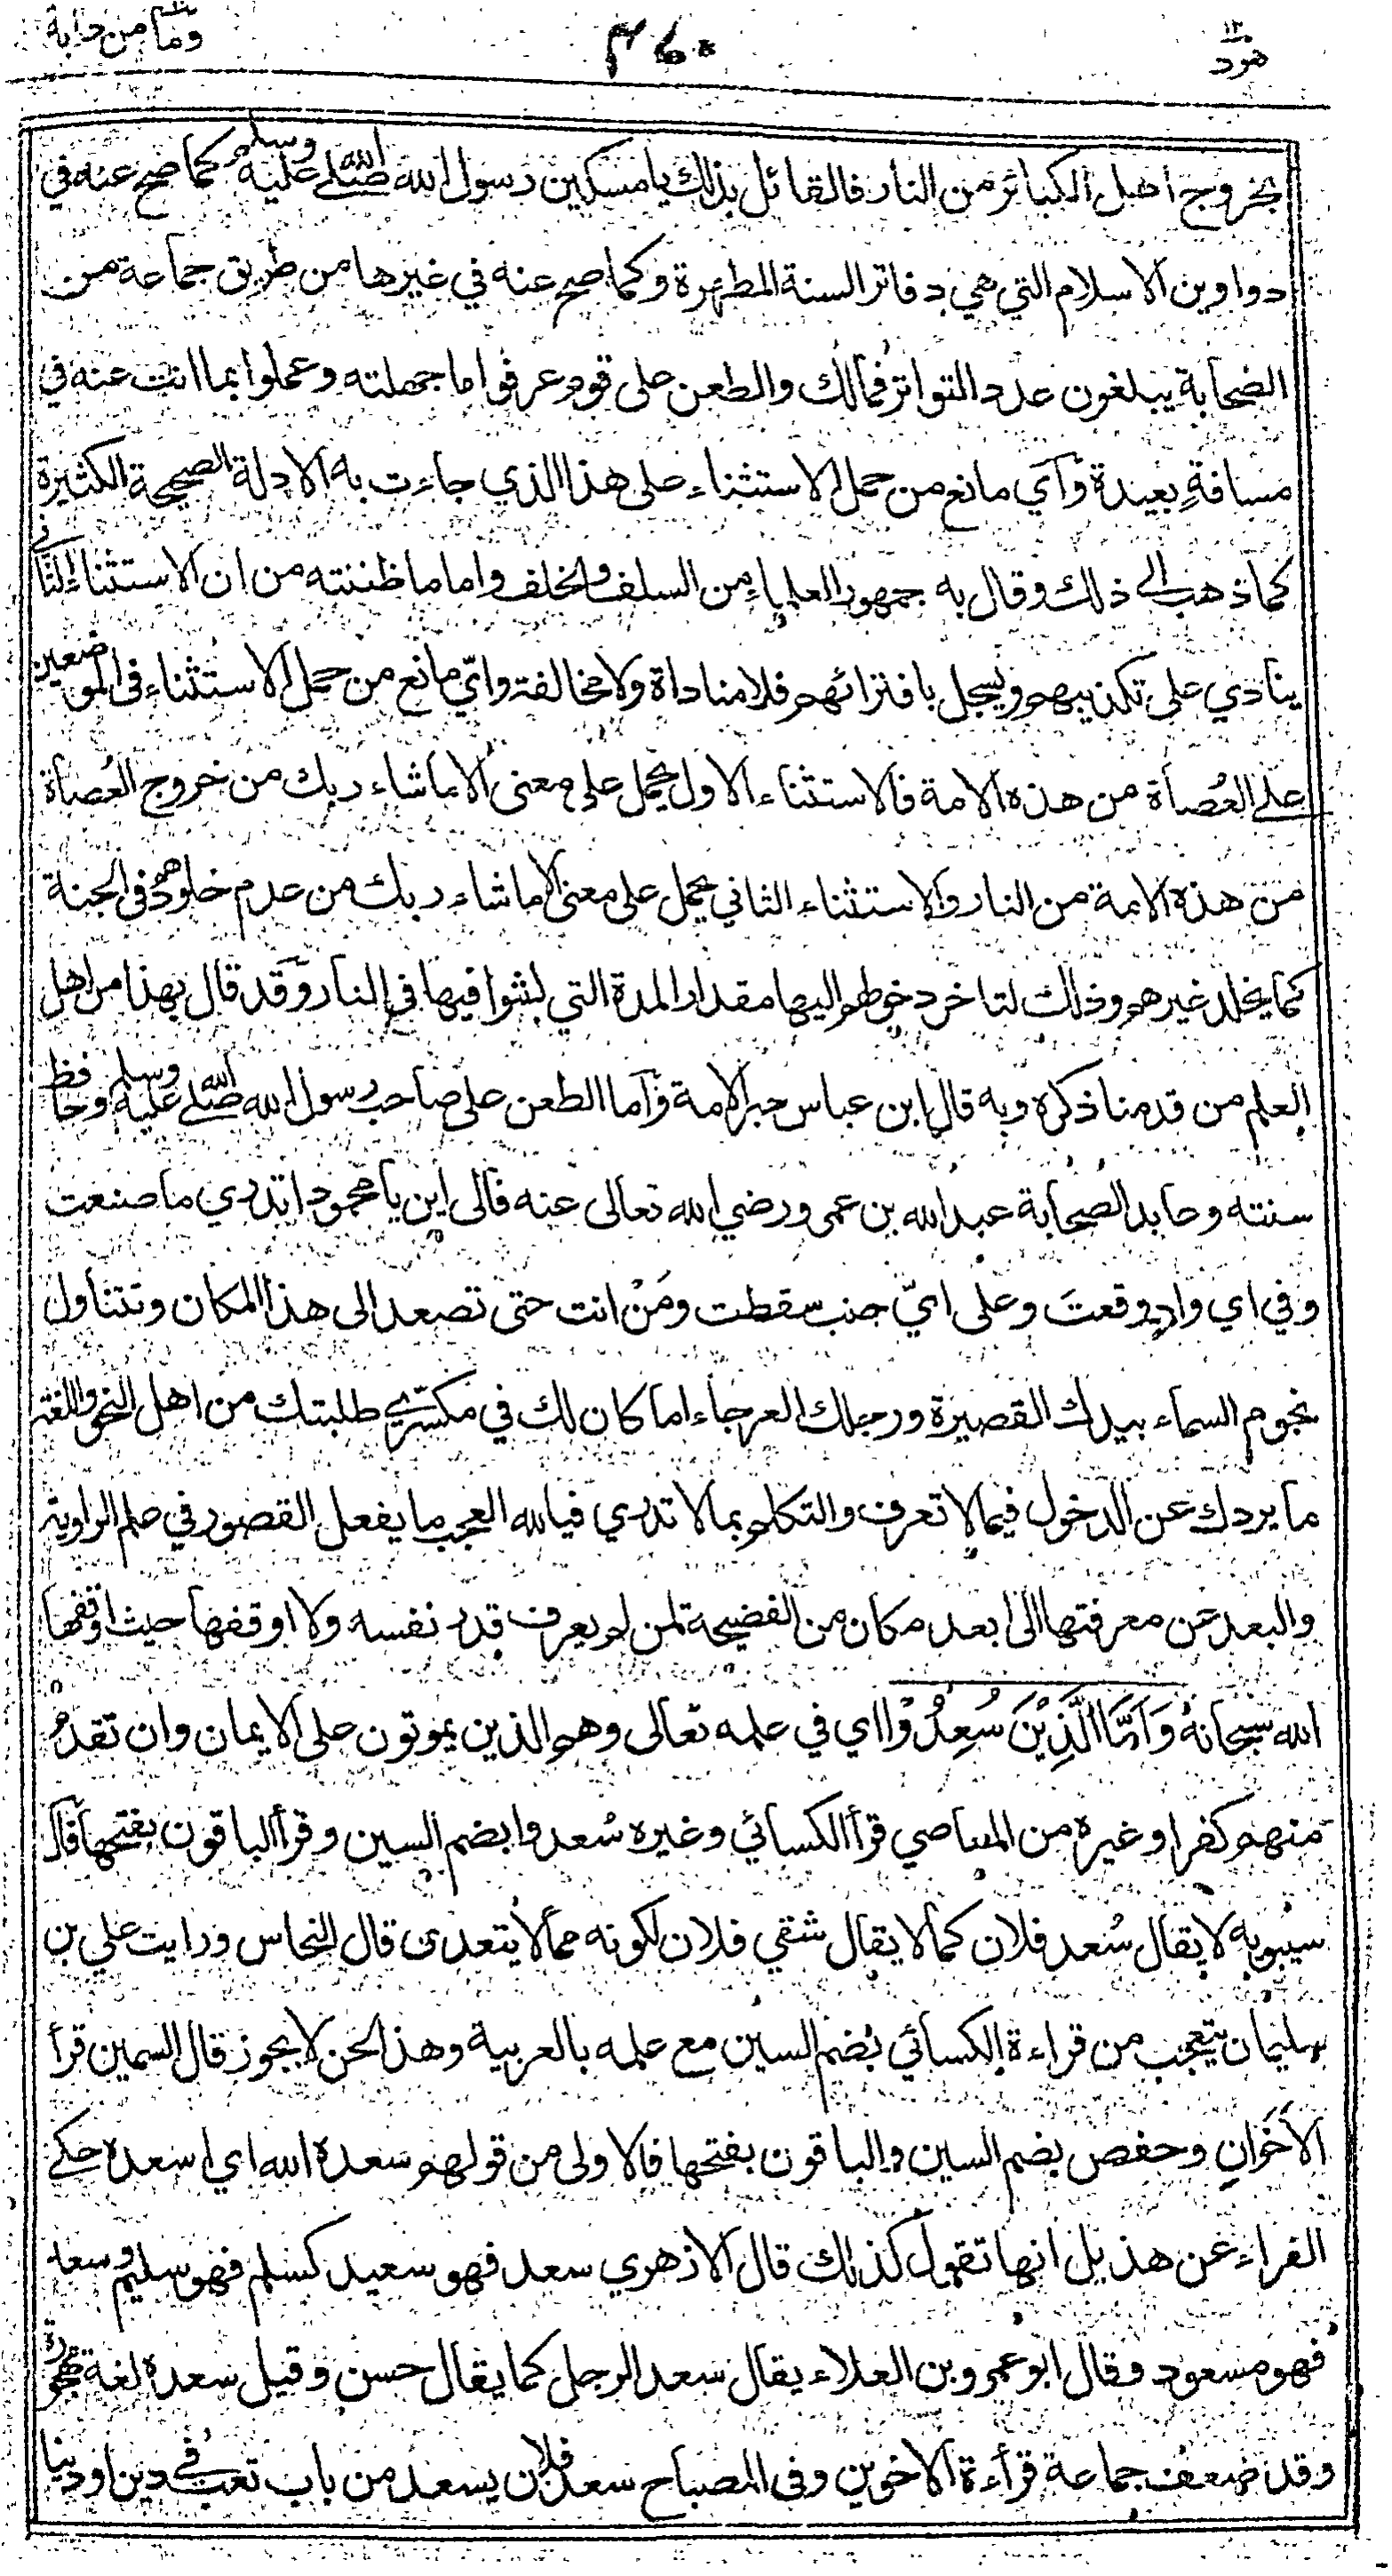 وما من دابة
٣٦٠
هود ١٢
بخروج اهل الكبائر من النار فالقائل بذلك يا مسكين رسول الله صلى الله عليه وسلم كما صح عنه في
دواوين الاسلام التي هي دفاتر السنة المطهرة وكما صح عنه في غيرها من طريق جماعة من
الصحابة يبلغون عدد التواتر فمالك والطعن على قوم عرفوا ما جهلته وعملوا بما انت عنه في
مسافةٍ بعيدة وآي مانع من حمل الاستثناء على هذا الذي جاءت به الادلة الصحيحة الكثيرة
كما ذهب الى ذلك وقال به جمهور العلماء من السلف والخلف واما ما ظننته من ان الاستثناء الثاني
ينادي على تكذيبهم ويسجل بافترائهم فلا مناداة ولا مخالفة وايّ مانع من حمل الاستثناء في الموضعين
على العُصاة من هذه الامة فالاستثناء الاول يحمل على معنى الا ما شاء ربك من خروج العُصاة
من هذه الامة من النار والاستثناء الثاني يحمل على معنى الا ما شاء ربك من عدم خلودهم في الجنة
كما يخلد غيرهم وذلك لتاخر دخولهم اليها مقدار المدة التي لبثوا فيها في النار وقد قال بهذا من اهل
العلم من قدمنا ذكره وبه قال ابن عباس حبر الامة وآما الطعن على صاحب رسول الله صلى الله عليه وسلم وحافظ
سنته وعابد الصحابة عبد الله بن عمرو رضي الله تعالى عنه فالى اين يا محمود اتدري ما صنعت
وفي اي وادٍ وقعتَ وعلى ايّ جنب سقطت ومَنْ انت حتى تصعد الى هذا المكان وتتناول
نجوم السماء بيدك القصيرة ورجلك العرجاء اما كان لك في مكسّري طلبتك من اهل النحو واللغة
ما يردك عن الدخول فيما لا تعرف والتكلم بما لا تدري فيا لله العجب ما يفعل القصور في علم الرواية
والبعد عن معرفتها الى ابعد مكان من الفضيحة لمن لم يعرف قدر نفسه ولا اوقفها حيث اوقفها
الله سبحانهُ وَاَمَّا الَّذِيْنَ سُعِدُوْا اي في علمه تعالى وهم الذين يموتون على الايمان وان تقدم
منهم كفر او غيره من المعاصي قرأ الكسائي وغيره سُعدوا بضم السين وقرأ الباقون بفتحها قال
سيبويه لا يقال سُعد فلان كما لا يقال شقي فلان لكونه مما لا يتعدى قال النحاس ورايت علي بن
سليمان يتعجب من قراءة الكسائي بُضم السين مع علمه بالعربية وهذا لحن لا يجوز قال السمين قرأ
الاَخَوَانِ وحفص بضم السين والباقون بفتحها فالاولى من قولهم سعده الله اي اسعده حكى
الفراء عن هذيل انها تقول كذلك قال الازهري سعد فهو سعيد كسلم فهو سليم وسعد
فهو مسعود وقال ابو عمرو بن العلاء يقال سعد الرجل كما يقال حسن وقيل سعده لغة مهجورة
وقد ضعف جماعة قرأءة الاخوين وفي المصباح سعد فلان يسعد من باب تعب في دين او دنيا